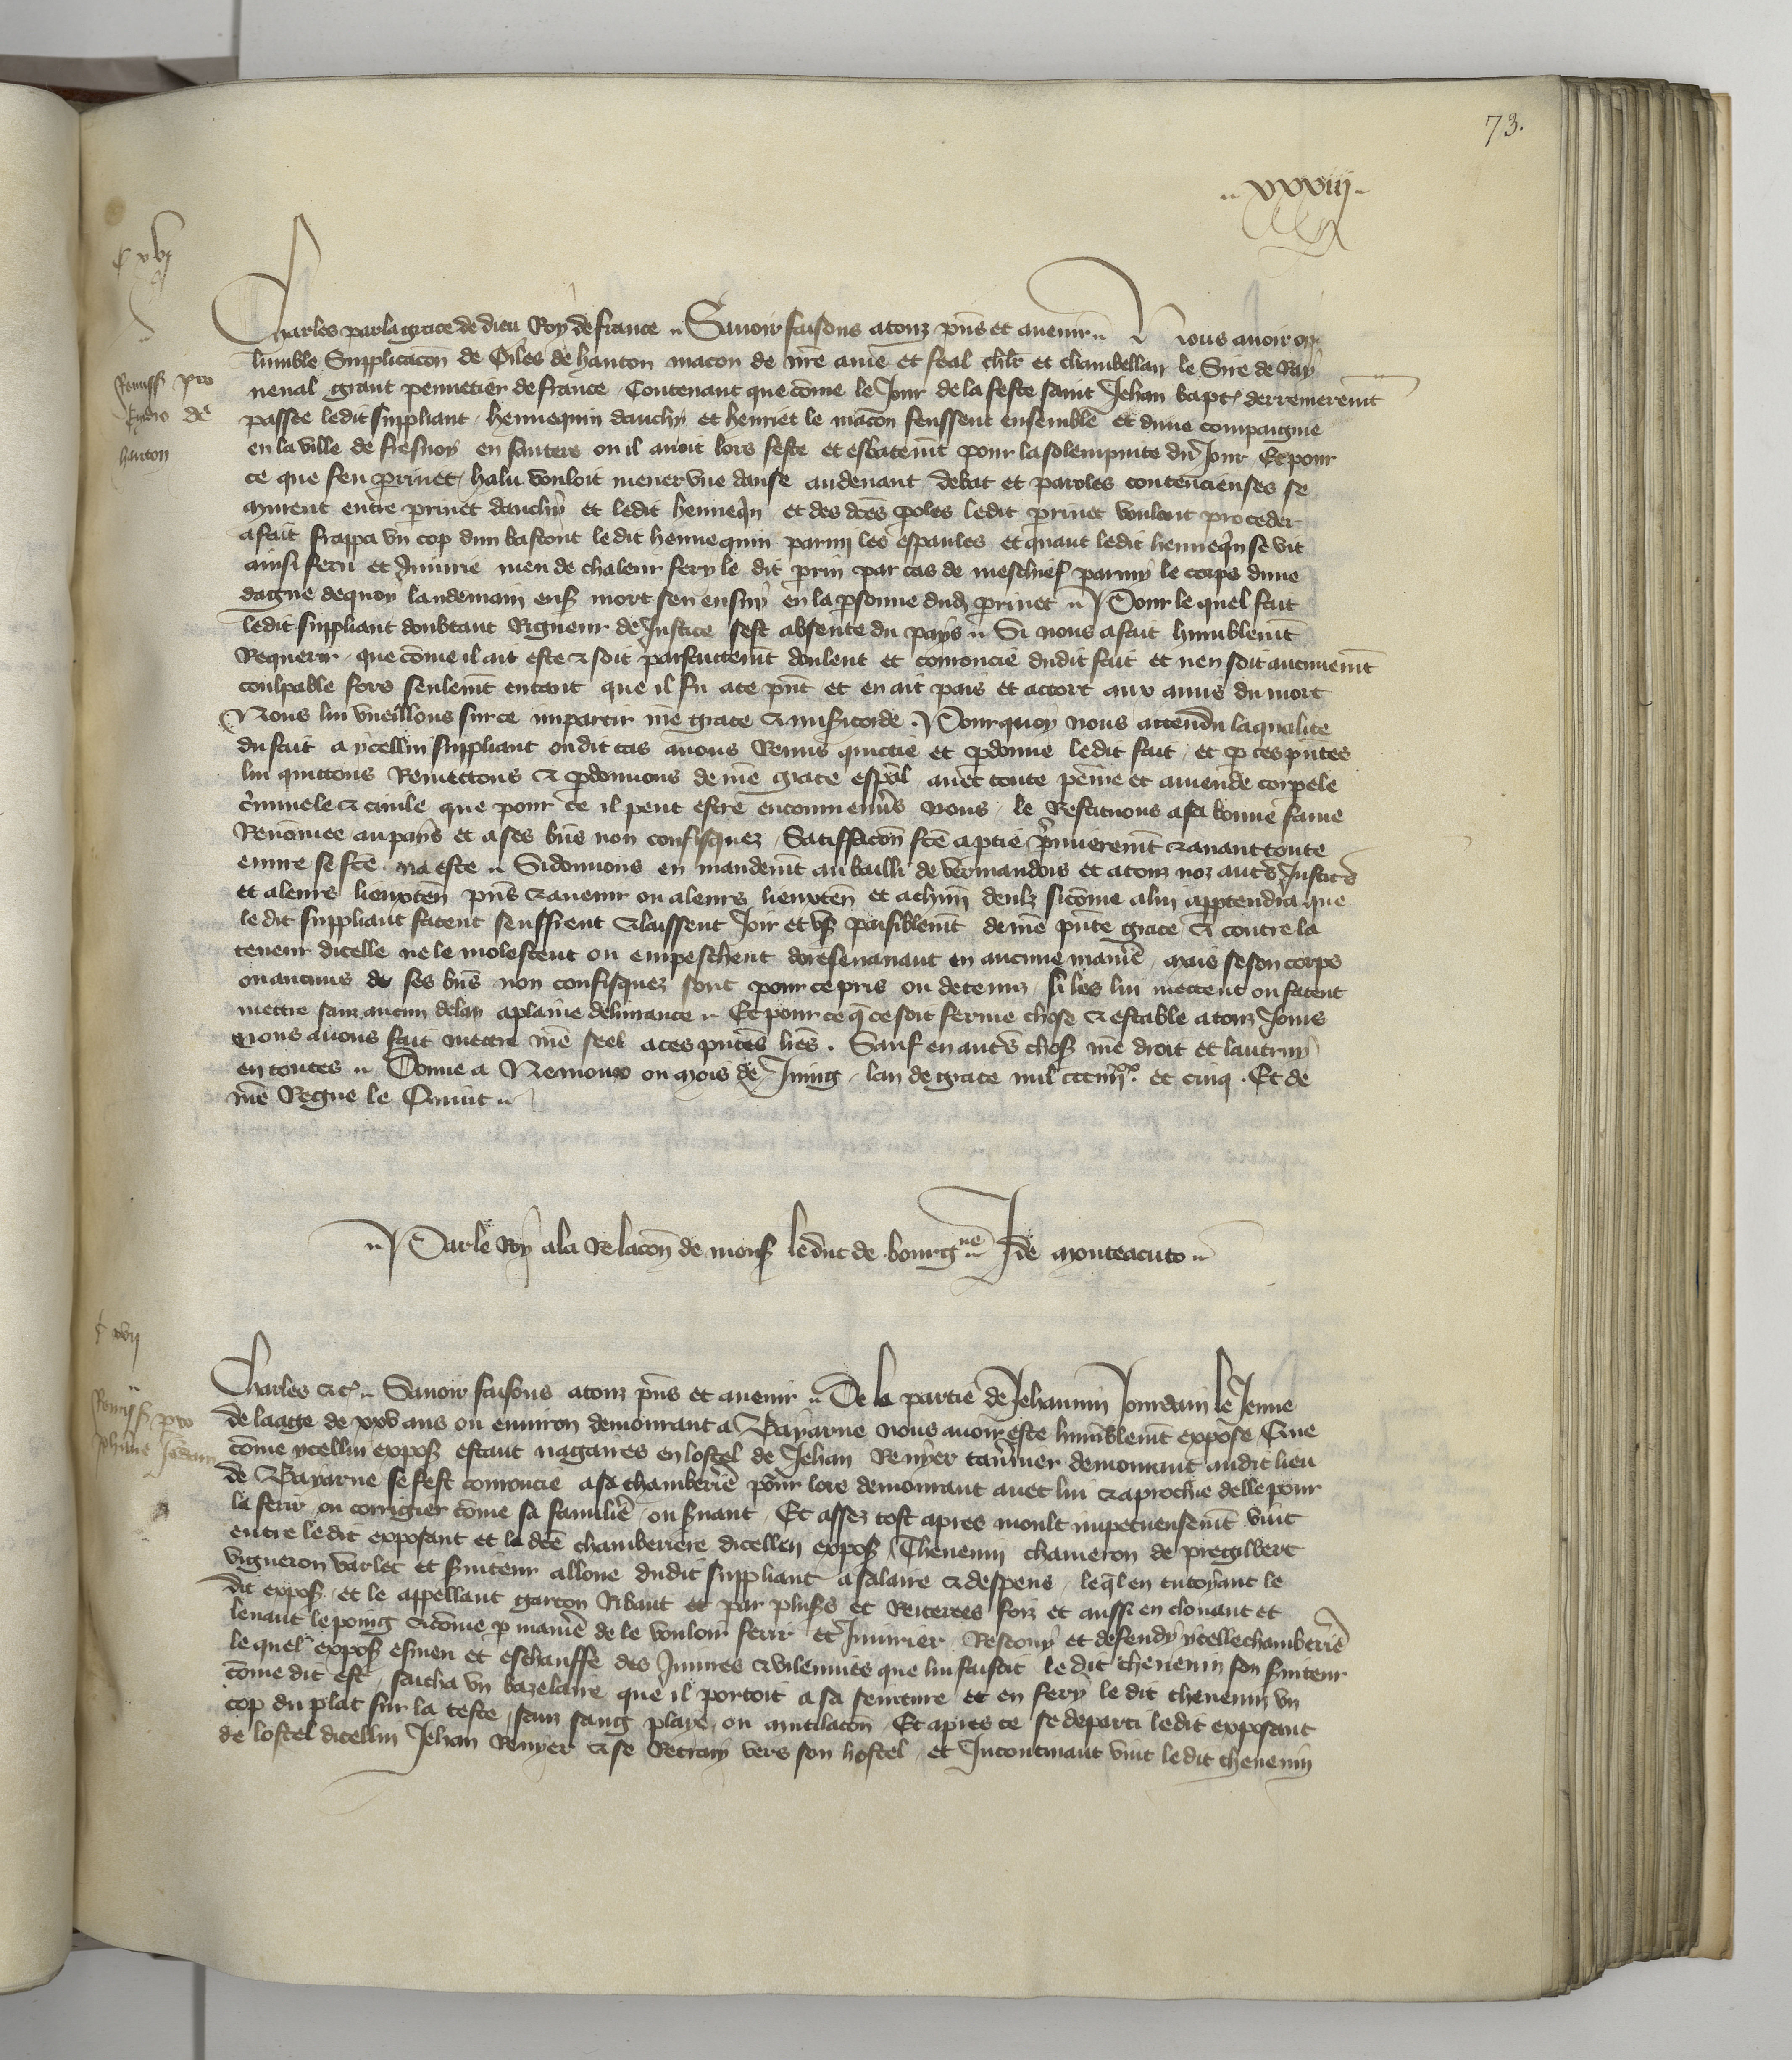 73.
.. xxxiij ..
C xvj
Charles par la grace de dieu Roy de france .. Savoir faisons a touz pns et avenir .. Nous avoir oye
lumble Supplicacon de Giles de hanton macon de nre ame et feal chlr et chambellan le Sire de Ray
neval grant pennetier de france Contenant que come le Jour de la feste saint Jehan bapt. derrenierent
Remiss pro
Egidio de
hanton
passee ledit suppliant hennequin dauchy et henriet le macon feussent ensemble et dune compaignie
en la ville de fresnoy en santers ou il avoit lors feste et esbatemt pour la solempnite du Jour Et pour
ce que feu perinet halu vouloit mener une danse au devant debat et paroles contencieuses se
myrent entre perinet dauchy et ledit henneqin et des dces poles ledit perinet voulant proceder
a fait frappa un cop dun bastont ledit hennequin parmi les espaules et quant ledit henneqin se vit
ainsi feru et Iniurie meu de chaleur fery le dit perin par cas de meschief parmy le corps dune
dague dequoy landemain ens mort sen ensuy en la psonne dud perinet .. Pour le quel fait
ledit suppliant doubtant Rigueur de Justice sest absente du pays .. Si nous a fait humblemt
Requerir que come il ait este & soit parfaittemt doulent et corroucie dudit fait et nen soit aucunemt
coulpable fors seulemt entant que il fu a ce pnt et en ait pais et accort aux amis du mort
Nous lui vueillons sur ce impartir nre grace & misicorde . Pourquoy nous attendu la qualite
du fait a ycellui suppliant ou dit cas avons Remis quictie et pdonne ledit fait et p ces pntes
lui quittons Remettons & pdonnons de nre grace espal avec toute peine et amende corpele
cminele & civile que pour ce il peut estre encouru envs nous le Restituons a sa bonne fame
Renomee au pays et a ses bns non confisquez Satisfacon fce a ptie pmierement & avant toute
euvre se fce na este .. Si donnons en mandemt au bailli de vermandois et a touz noz autrs Justices
et a leurs lieuxten pns & avenir ou a leurs lieuxten et a chun deulz sicome a lui apptendra que
le dit suppliant facent seuffrent & laissent Joir et us paisiblemt de nre pnte grace & contre la
teneur dicelle ne le molestent ou empeschent doresenavant en aucune manie mais se son corps
ou aucuns de ses bns non confisquez sont pour ce pris ou detenuz si les lui mettent ou facent
mettre sanz aucun delay a plaine delivrance .. Et pour ce q ce soit ferme chose & estable a touz Jours
nous avons fait mettre nre seel a ces pntes lres . Sauf en autrs chos nre droit et lautruy
en toutes .. Donne a Nemoux ou mois de Juing lan de grace mil ccciiijxx et cinq . Et de
nre Regne le Quint ..
.. Par le Roy a la Relacon de mons le duc de bourgne .. J de monteacuto ..
C xvij
Charles &c .. Savoir faisons a touz pns et avenir .. De la partie de Jehannin Jourdain le Jeune
Remiss pro
Johanne Jordani
de laage de xxv ans ou environ demourant a Bayarne nous avoir este humblemt expose Que
come ycellui expos estant nagaires en lostel de Jehan Renyer tavnier demourant audit lieu
de Bayarne se fest corroucie a sa chamberie pour lors demourant avec lui & aprochie delle pour
la ferir ou corrigier come sa familie ou suant Et assez tost apres moult impetueusemt vint
entre le dit exposant et la dce chamberiere dicellui expos Thevenin chameron de pregilbert
vigneron varlet et sviteur alloue dudit suppliant a salaire & despens leql en tutoyant le
dit expos et le appellant garcon Ribaut et par plusrs et Reiterees foiz et aussi en clouant et
levant le poing & come p manie de le vouloir ferir et Iniurier Rescouy et defendy ycelle chamberie
le quel expos esmeu et eschauffe des Iniures & vilennies que lui faisoit le dit thevenin son sviteur
come dit est sacha un bazelaire que il portoit a sa sencture et en fery le dit thevenin un
cop du plat sur la teste sanz sang playe ou mutilacon Et apres ce se departi ledit exposant
de lostel dicellui Jehan Renyer & se Retray vers son hostel et Incontinant vint ledit thevenin